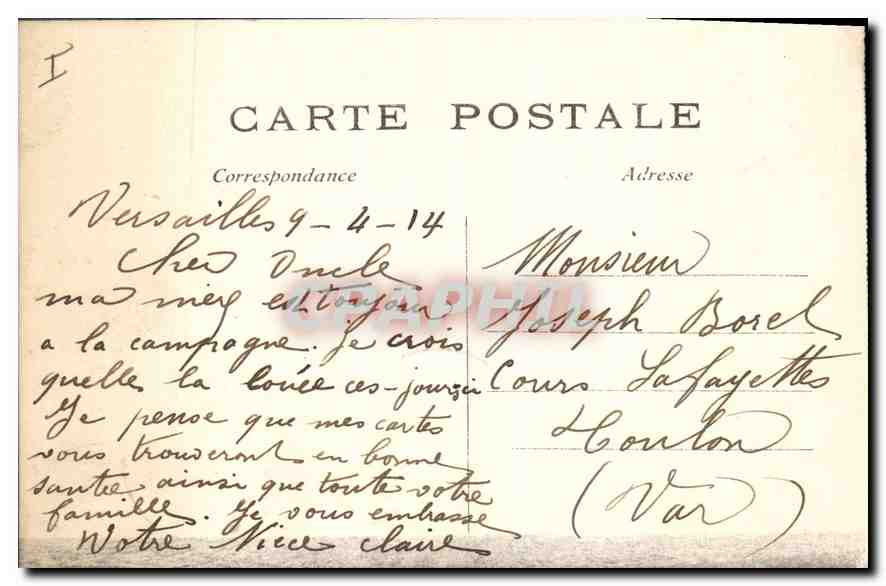 I
CARTE POSTALE
Correspondance
Adresse
Versailles 9-4-14
Cher Oncle
ma mere est toujour
a la campagne. je crois
quelles la louée ces-jours-ci
Je pense que mes cartes
vous trouveront en bonne
santée ainsi que toute votre
famille. Je vous embrasse
Votre Niece Claire
Monsieur
Joseph Borel
Cours Lafayettes
Toulon
(Var)
CPAPHIL